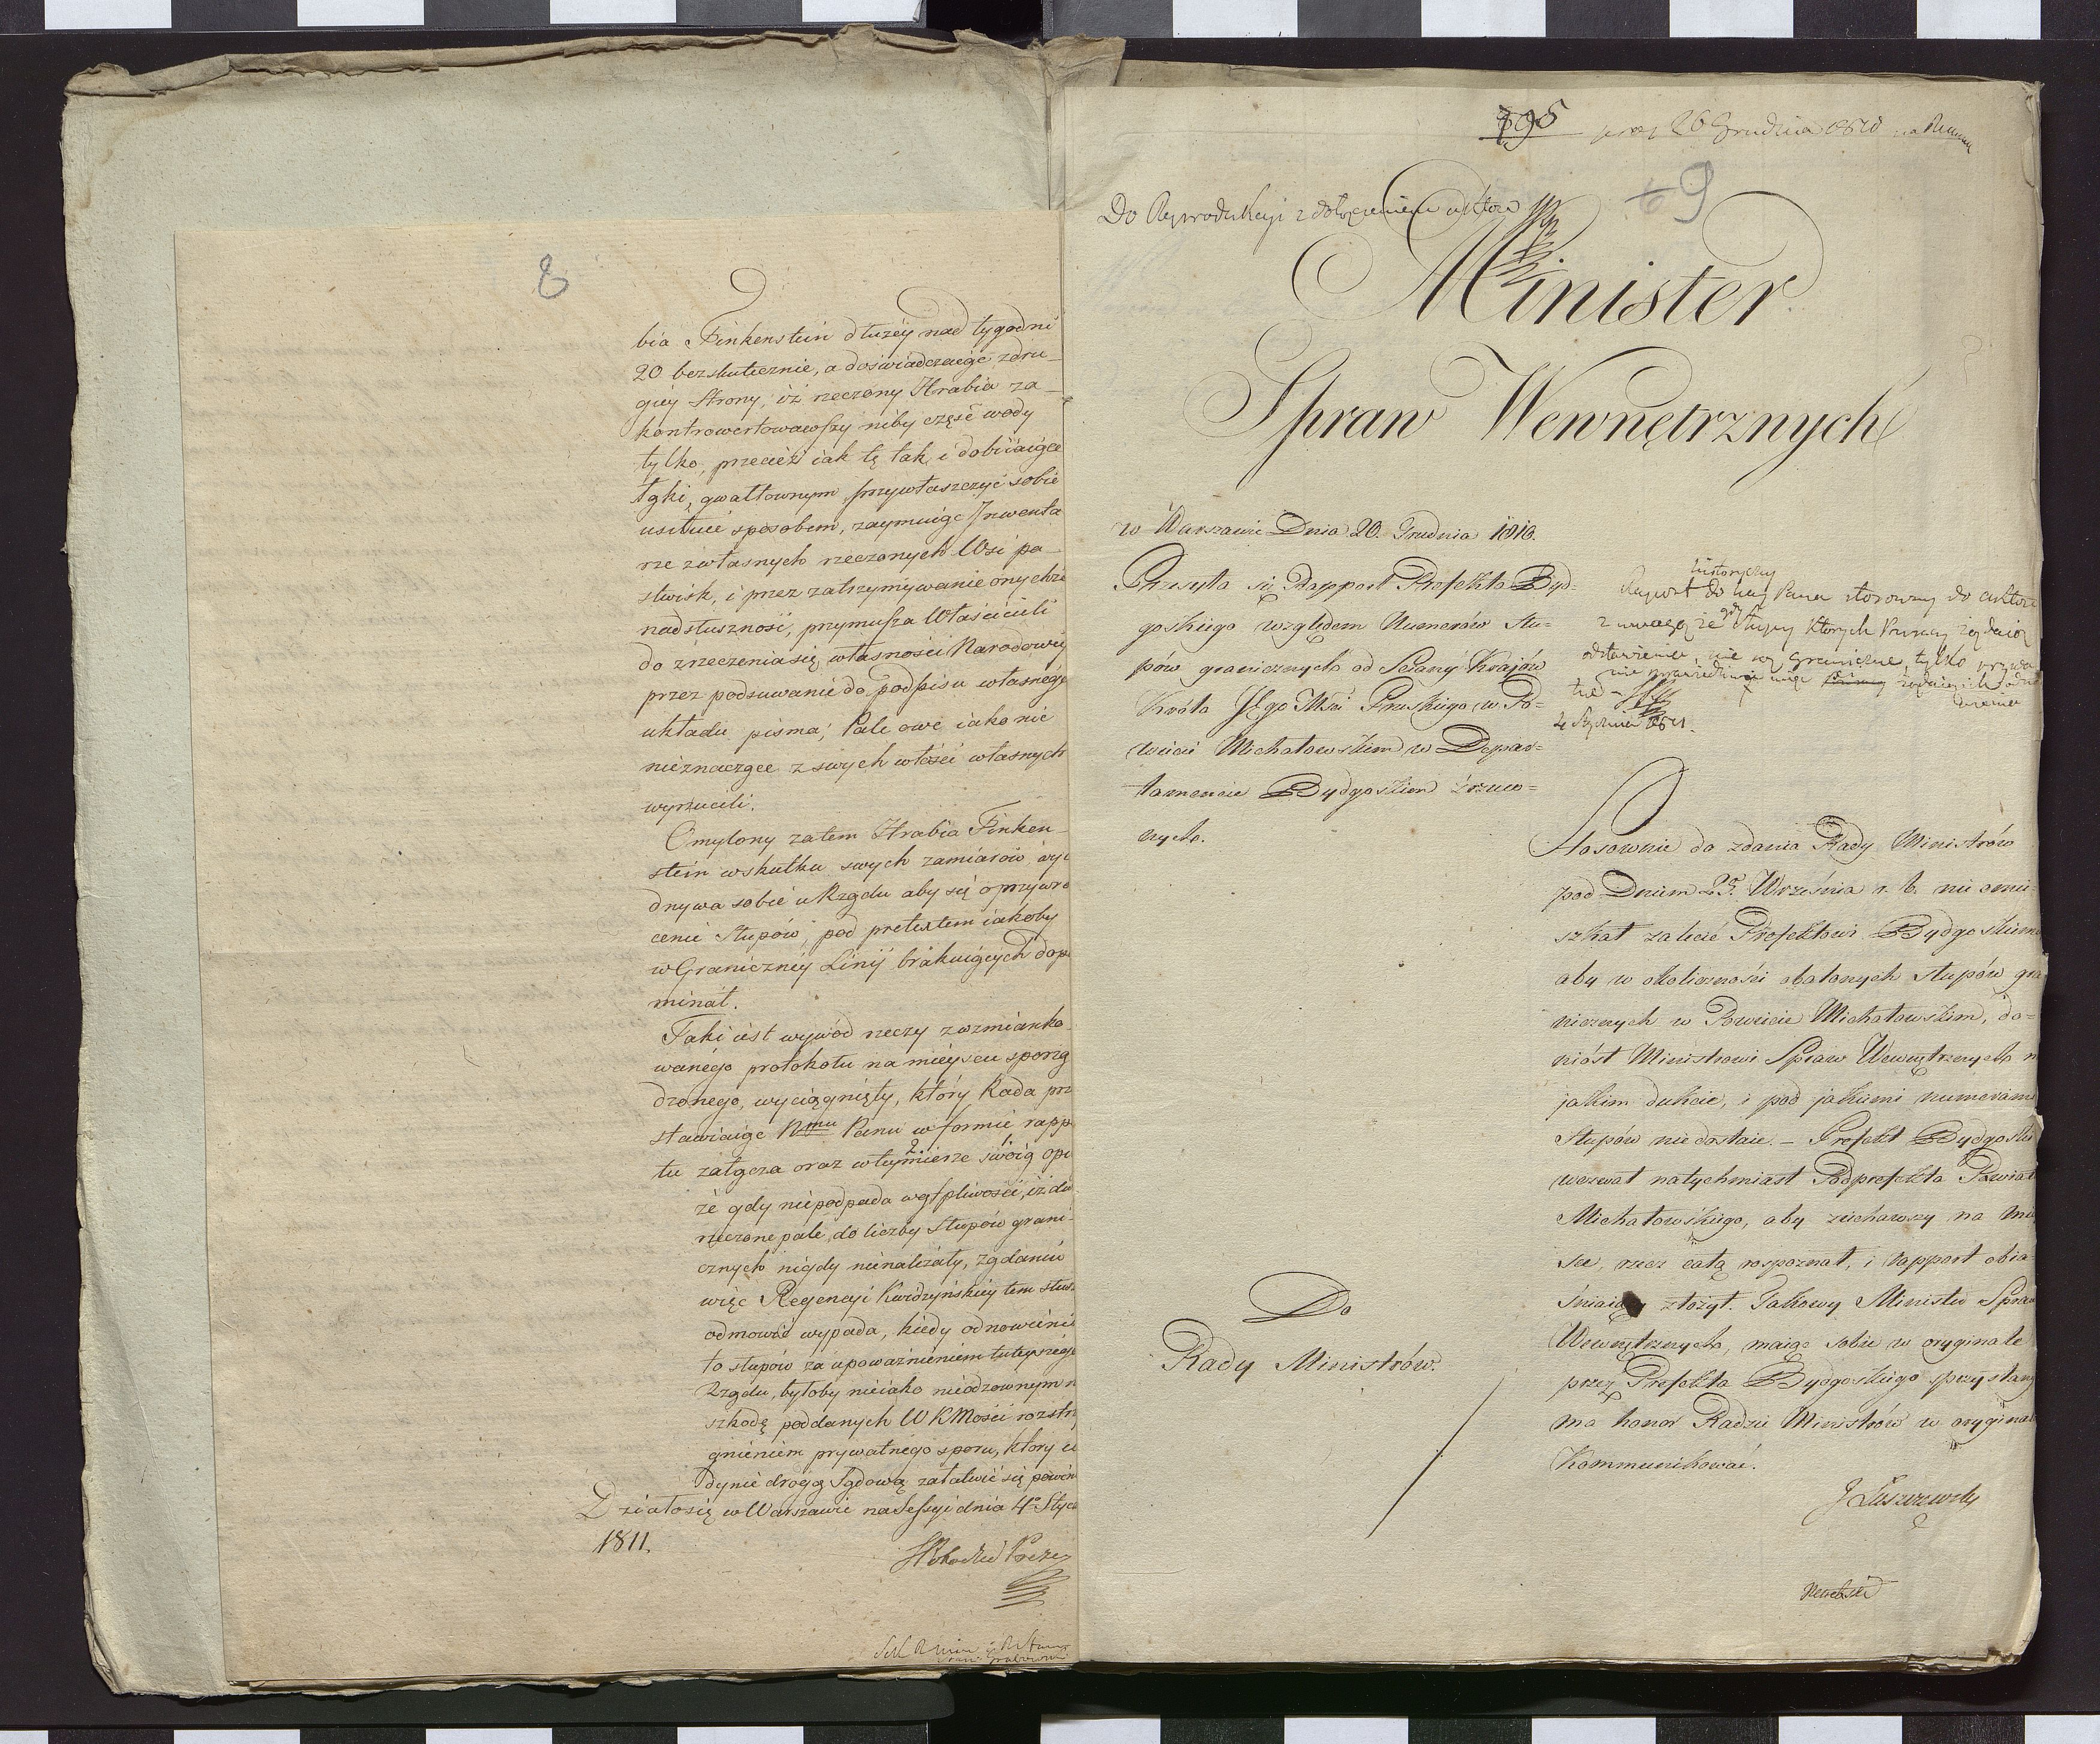 8
bia Finkenstein dłużéy nad tygodni
20 bezskutecznie, a doświadczaiąc zdru_
giéy Strony, iż rzeczony Hrabia za_
kontrowertowawszy niby część wody
tylko, przecież iak tę tak i dobiiaiące
łąki, gwałtownym przywłaszczyć sobie
usiłuie sposobem, zaymuiąc Inwenta
rze zwłasnych rzeczonych Wsi pa_
stwisk, i przez zatrzymywanie onychże
nadsłuszność, przymusza Właścicieli
do zrzeczenia się własności Narodowéy
przez podsuwanie do podpisu własnego
układu pisma; Pale owe iako nic
nieznaczące z swych włości własnych
wyrzucili.
Omylony zatem Hrabia Finken_
stein wskutku swych zamiarów wyie
dnywa sobie u Rządu aby się o przywró
cenie Słupów, pod pretextem iakoby
w Graniczney Linij brakuiących dopo
minał.
Taki iest wywód rzeczy z wzmianko
wanégo protokołu na mieyscu sporzą
dzonego, wyciągnięty, który Rada prze
stawiaiąc Nmu Panu w formie rappo
tu załącza oraz w teymierze swoią opi
że gdy niepodpada wątpliwości, iż dwa
rzeczone pale, do liczby Słupów grani_
cznych nigdy nienależały, żądaniu
więc Regencyi Kwidzyńskiey tem słusz
odmowić wypada, kiedy odnowienie
to słupów za upoważnieniem tuteyszego
Rządu, byłoby nieiako nieodzownym n
szkodę poddanych WKMości rozstrz
gnieniem prywatnego sporu, który ie
dynie drogą Sądową załatwić się powin
Działo się w Warszawie na Sessyi dnia 4º Stycz
1811.
Prezes
195
26 Grudnia 1810
69
Do Reprodukcyi z dołączeniem aktów
Minister
Spraw Wewnętrznych
w Warszawie Dnia 20. Grudnia 1810.
Przesyła się Rapport Prefekta Byd=
goskiego względem Numerów Słu=
pów granicznych od Sciany Krajów
Króla Jego Mści Pruskiego w Po=
wiecie Michałowskim w Depar=
tamencie Bydgoskiem zrzuco=
nych.
historyczny
Raport do Nay Pana stosowny do aktów
z uwagą że gdy słupy których Prusacy żądaią
odstawienia nie są graniczne, tylko prywa
tne
4 Stycznia 1811.
Stosownie do zdania Rady Ministrów
pod Dniem 25. Września r. b. nie omie
szkał zalecić Prefektowi Bydgoskiemu
aby w okoliczności obalonych słupów gra
nicznych w Powiecie Michałowskim, do=
niósł Ministrowi Spraw Wewnętrznych w
jakim dukcie, i pod jakiemi numerami
Słupów niedostaie. – Prefekt Bydgoski
wezwał natychmiast Podprefekta Powiatu
Michałowskiego, aby ziechawszy na miey
sce, rzecz całą rospoznał, i rapport obia
śniaiący złożył. Takowy Minister Spraw
Wewnętrznych, maiąc sobie w oryginale
przez Prefekta Bydgoskiego przysłany
ma honor Radzie Ministrów w oryginale
Kommunikować.
J Łuszczewski
Do
Rady Ministrów.